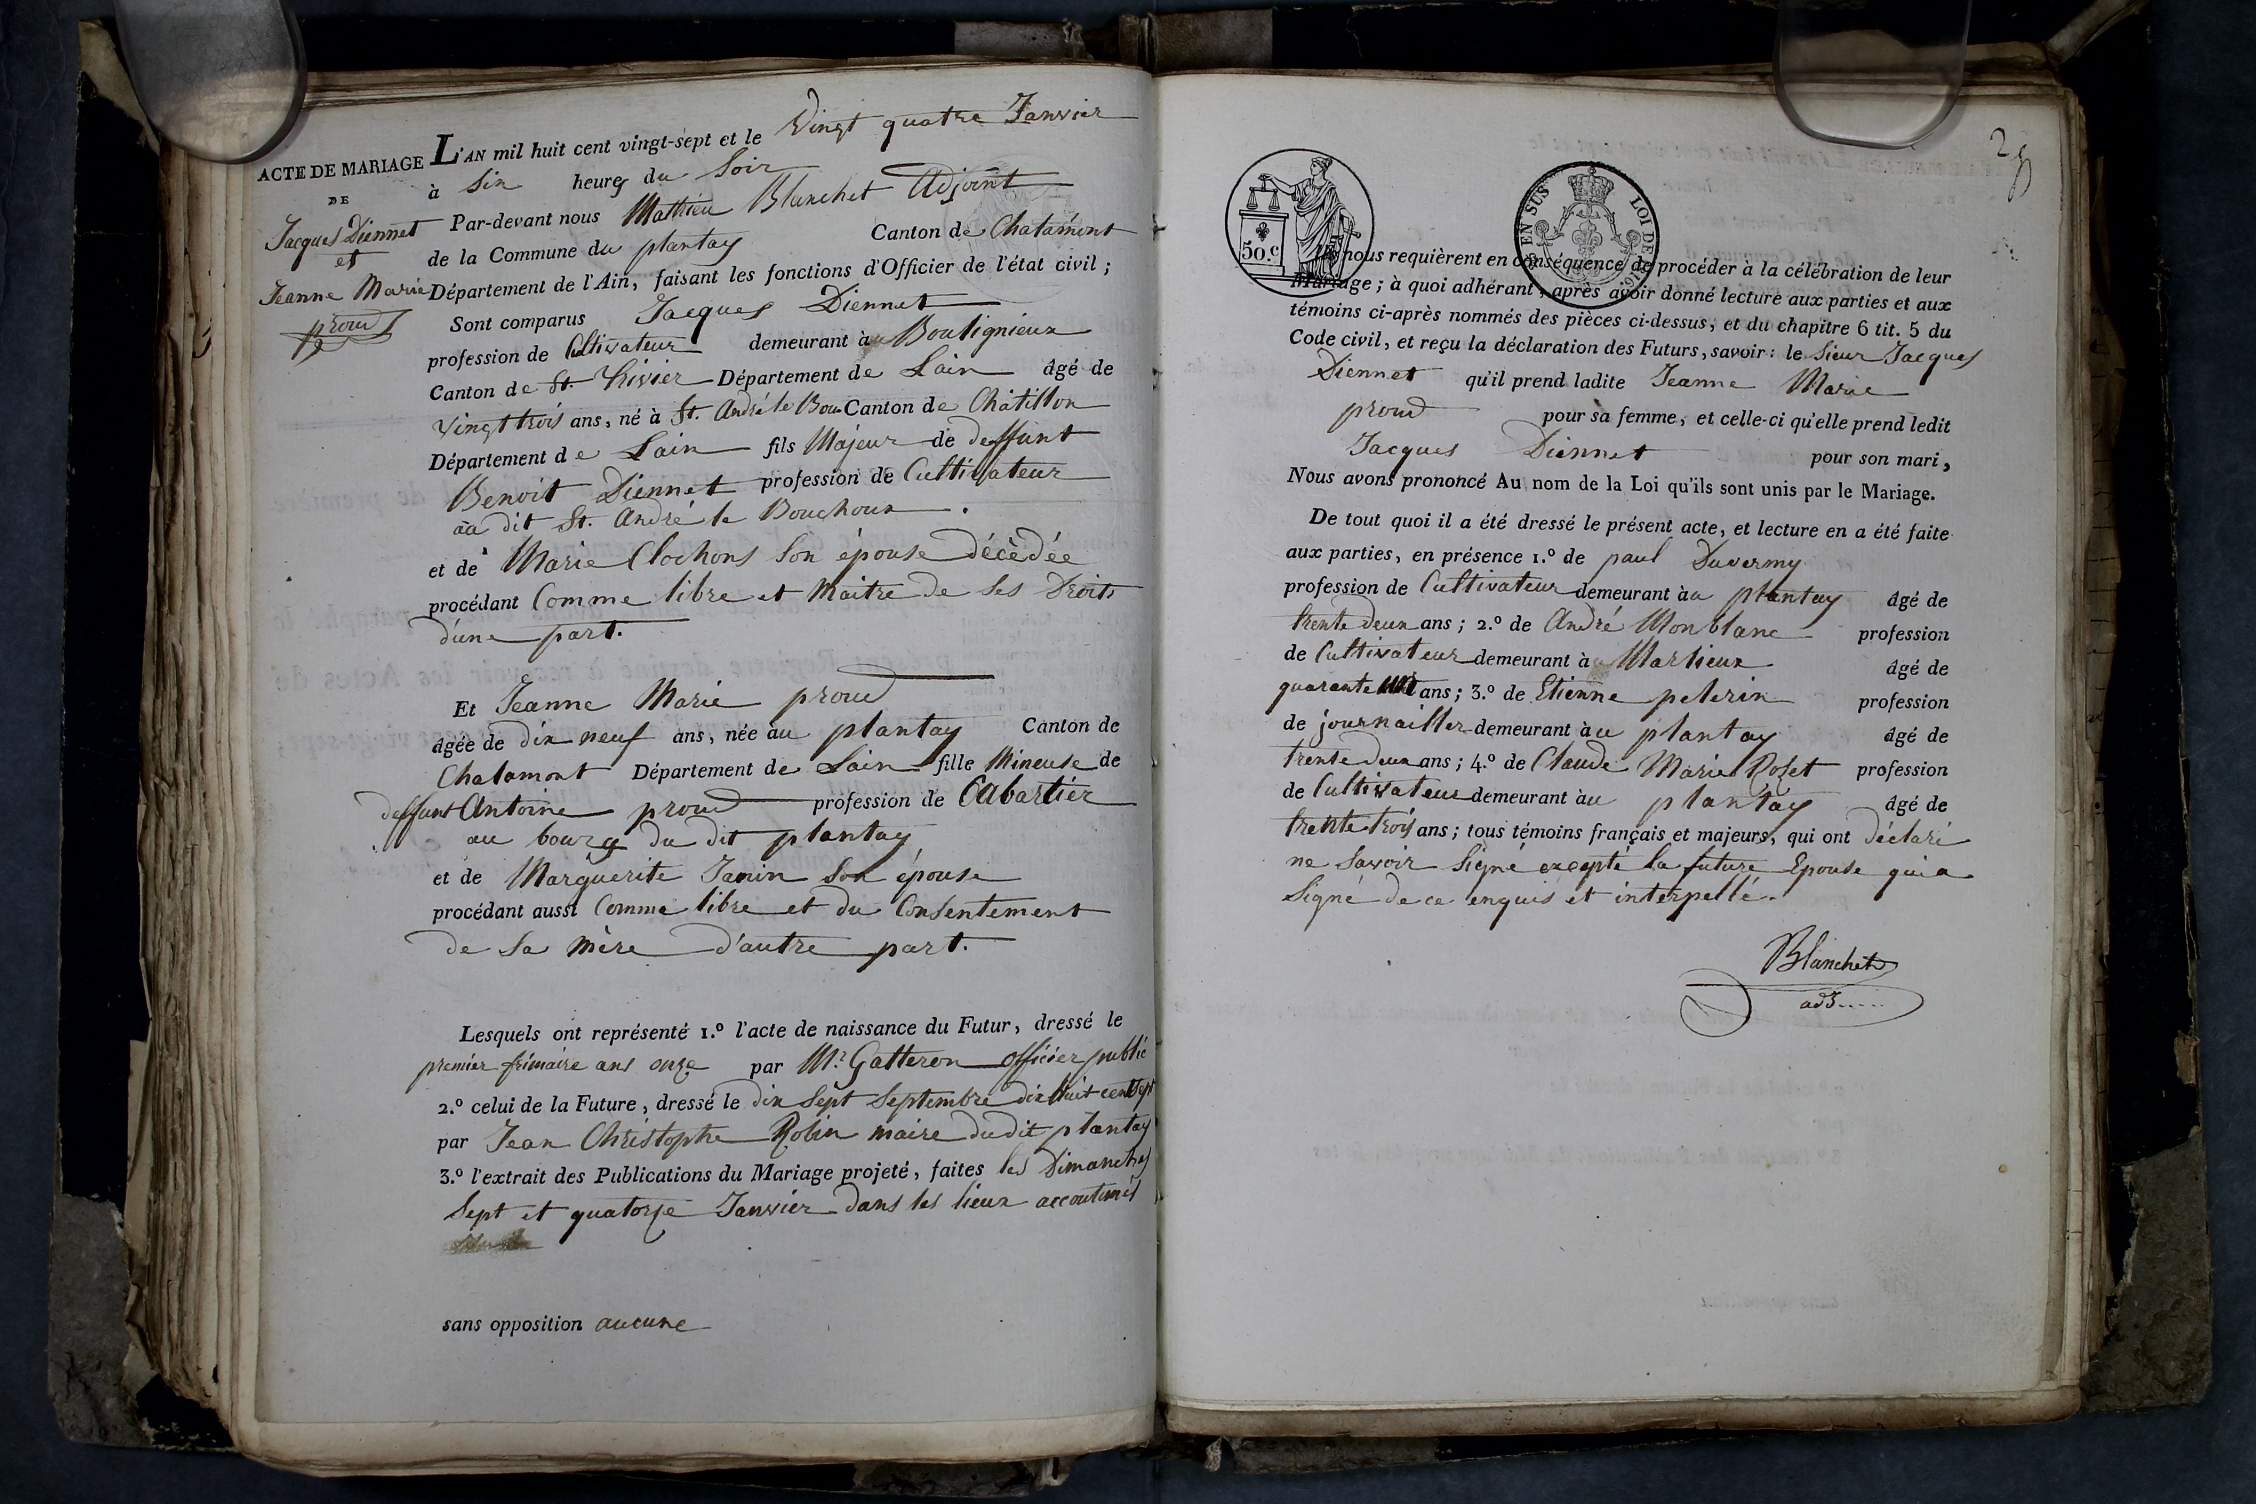 ACTE DE MARIAGE
DE
Jacques Diennet
et
Jeanne Marie
proud
L'AN mil huit cent vingt-sept et le Vingt quatre Janvier
à Six heures du Soir
Par-devant nous Mathieu Blanchet Adjoint
de la Commune du plantay Canton de Chatamont
Département de l'Ain, faisant les fonctions d'Officier de l'état civil ;
Sont comparus Jacques Diennet
profession de Cultivateur demeurant à Boulignieux
Canton de St. Trivier Département de Lain âgé de
Vingt trois ans, né à St. André le Bou Canton de Châtillon
Département de Lain fils Majeur de deffunt
Benoit Diennet profession de Cultivateur
au dit St. André le Bouchoux
et de Marie Clochons Son épouse décédée
procédant Comme libre et Maitre de ses Droits
d'une part.
Et Jeanne Marie proud
âgée de dix neuf ans, née au plantay Canton de
Chalamont Département de Lain fille Mineuse de
deffunt Antoine proud profession de Cabartier
au bourg du dit plantay
et de Marguerite Janin Son épouse
procédant aussi Comme libre et du Consentement
de sa mère d'autre part.
Lesquels ont représenté 1.º l'acte de naissance du Futur, dressé le
premier frimaire ans onze par Mr. Gatteron officier public
2.º celui de la Future, dressé le dix Sept Septembre dix huit cent Sept
par Jean Christophe Robin maire dudit plantay
3.º l'extrait des Publications du Mariage projeté, faites les Dimanches
Sept et quatorze Janvier dans les lieux accoutumés
sans opposition aucune
50.c
EN SUS LOI DE
nous requièrent en conséquence de procéder à la célébration de leur
Mariage ; à quoi adhérant, après avoir donné lecture aux parties et aux
témoins ci-après nommés des pièces ci-dessus, et du chapitre 6 tit. 5 du
Code civil, et reçu la déclaration des Futurs, savoir : le Sieur Jacques
Diennet qu'il prend ladite Jeanne Marie
proud pour sa femme, et celle-ci qu'elle prend ledit
Jacques Diennet pour son mari,
Nous avons prononcé Au nom de la Loi qu'ils sont unis par le Mariage.
De tout quoi il a été dressé le présent acte, et lecture en a été faite
aux parties, en présence 1.º de paul Duverny
profession de Cultivateur demeurant au plantay âgé de
trente deux ans ; 2.º de André Monblanc profession
de Cultivateur demeurant à Marlieux âgé de
quarante ans ; 3.º de Etienne pelerin profession
de journailler demeurant au plantay âgé de
trente deux ans ; 4.º de Claude Marie Rozet profession
de Cultivateur demeurant au plantay âgé de
trente trois ans ; tous témoins français et majeurs, qui ont déclaré
ne savoir Signé excepté la future Epouse qui a
Signé de ce enquis et interpellé.
Blanchet
adj.....